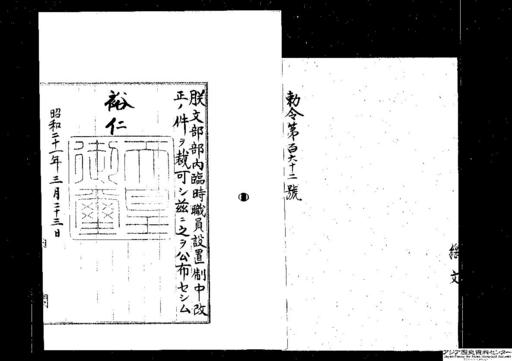 勅令第百六十二號
朕文部部内臨時職員設置制中改
正ノ件ヲ裁可シ茲ニ之ヲ公布セシム
裕仁
天皇御璽
昭和二十一年三月二十三日
アジア歴史資料センター